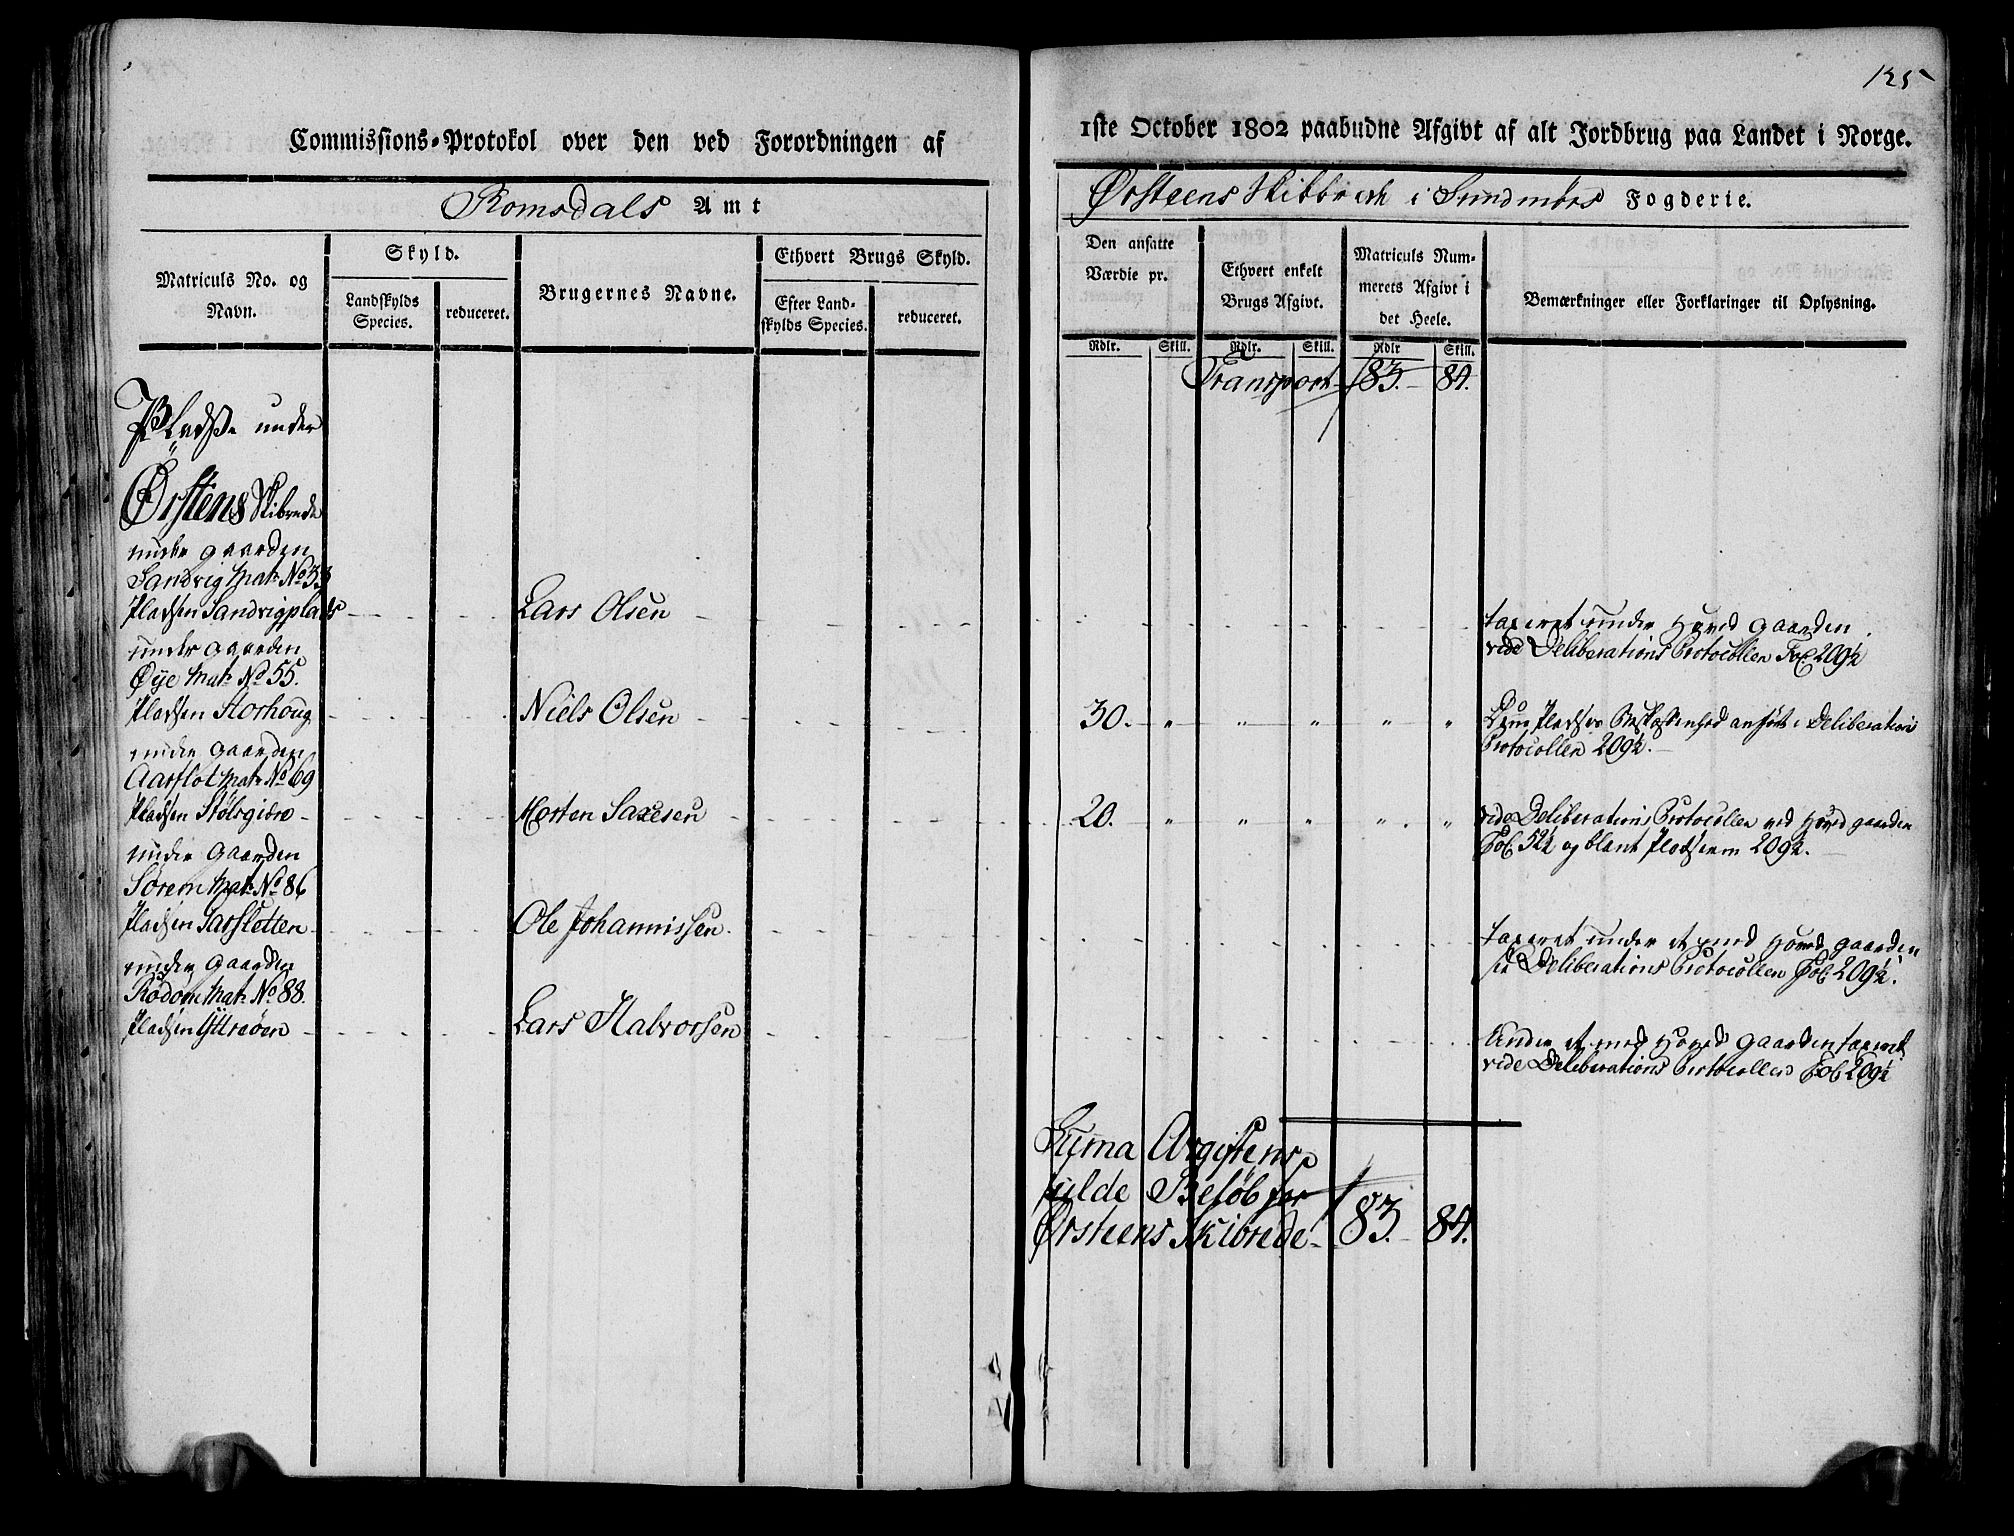 125
Commissions-Protokol over den ved Forordningen af
1ste October 1802 paabudne Afgivt af alt Jordbrug paa Landet i Norge.
Romsdals Amt
Ørsteens Skibbrede i Sundmørs Fogderie.
Matriculs No. og Navn.
Skyld.
Landskylds Species.
reduceret.
Brugernes Navne.
Ethvert Brugs Skyld.
Efter Landskylds Species.
reduceret.
Den ansatte Værdie pr.
Ethvert enkelt Brugs Afgivt.
Matriculs Nummerets Afgivt i det Heele.
Bemærkninger eller Forklaringer til Oplysning.
Rdlr. Skill. Rdlr. Skill. Rdlr Skill.
Transport 183. 84.
Pladse under
Ørstens Skibrede
under gaarden
Sandvig Matr No 33
Pladsen Sandvigplads Lars Olsen taxeret under Hoved gaarden
vide Deliberations Protocollen Fol 209½
under gaarden
Øye Matr No 55.
Pladsen Storhoug Niels Olsen 30. " " " " " Denne Pladses Beskaffenhed anført i Deliberations
Protocollen 209½.
under gaarden
Aarflot Matr No 69
Pladsen Stølsgibro Morten Saxesen 20. " " " " " vide Deliberations Protocollen ved Hoved gaarden
Fol 52½ og blant Pladserne 209½.
under gaarden
Sørem Matr No 86
Pladsen Sarsletten Ole Johannissen taxeret under et med Hoved gaarden
se Deliberations Protocollen Fol 209½.
under gaarden
Rødøm Matr No 88.
Pladsen Yttreøen Lars Halvorsen Under et med Hoved gaarden taxeret
vide Deliberations Protocollen Fol 209½
Suma Avgiftens
fulde Beløb for
Ørsteens Skibrede 183. 84.